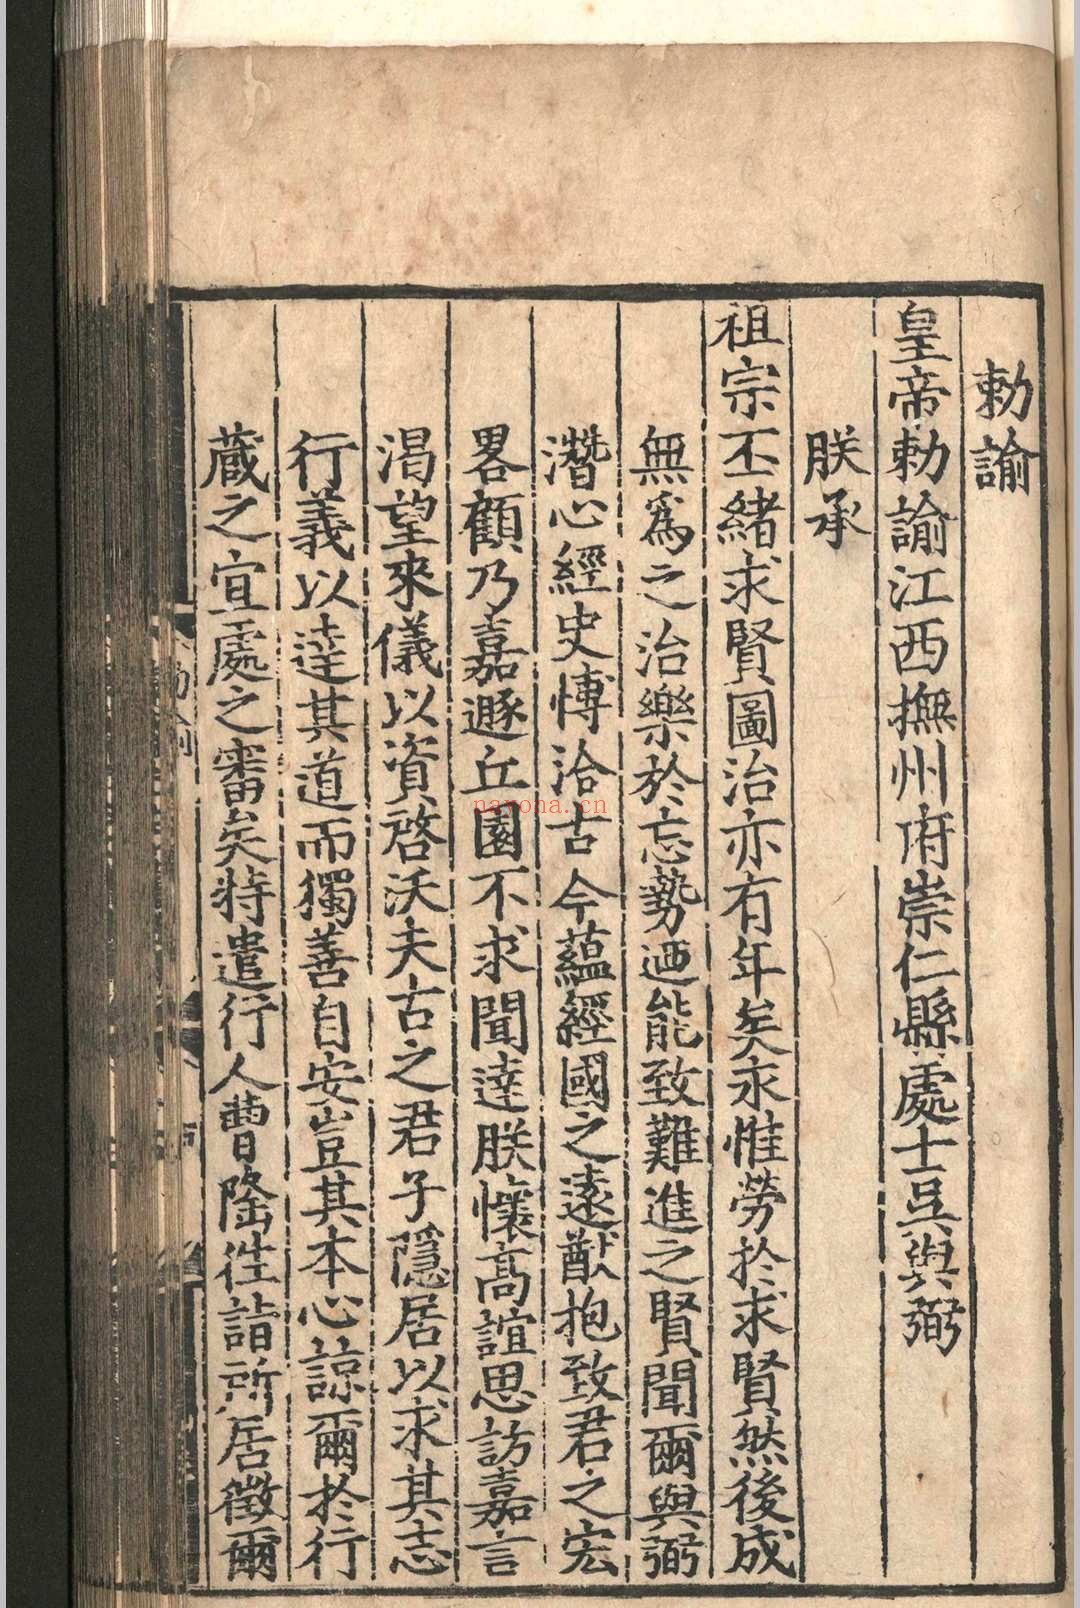 勅諭
皇帝勅諭江西撫州府崇仁縣處士吳與弼
朕承
祖宗丕緒求賢圖治亦有年矣永惟勞於求賢然後成
無爲之治樂於忘勢迺能致難進之賢聞爾與弼
潛心經史博洽古今蘊經國之遠猷抱致君之宏
畧顧乃嘉遯丘園不求聞達朕懷高誼思訪嘉言
渴望來儀以資啓沃夫古之君子隱居以求其志
行義以達其道而獨善自安豈其本心諒爾於行
蔵之宜處之審矣特遣行人曹隆徃詣所居徵爾
nayona.cn